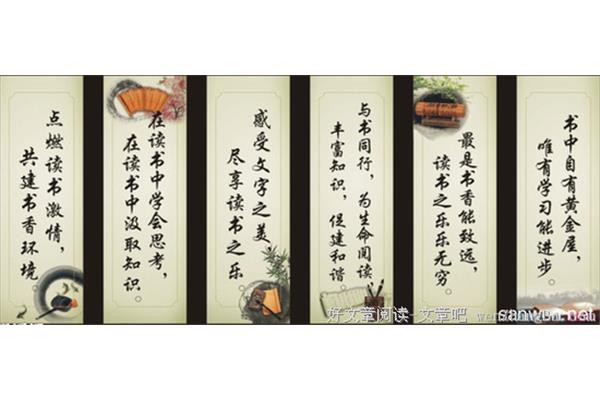 点燃读书激情，
共建书香环境
在读书中学会思考，
在读书中汲取知识
感受文字之美，
尽享读书之乐
与书同行，为生命阅读
丰富知识，促建和谐
最是书香能致远，
读书之乐乐无穷
书中自有黄金屋，
唯有学习能进步
好文章阅读-文章吧
sanwen.net